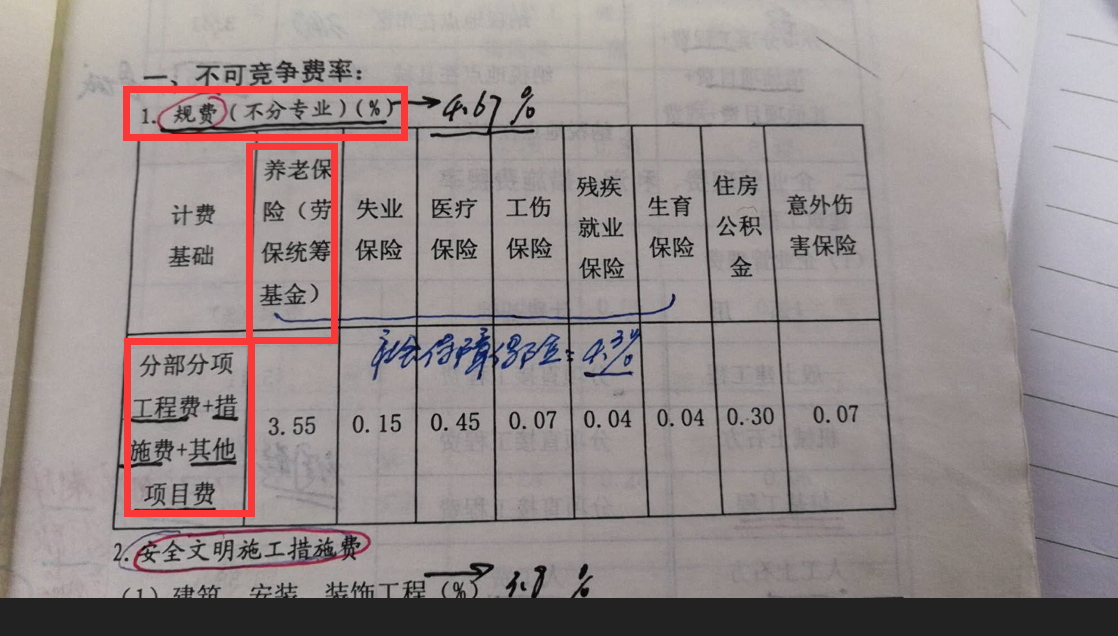 一、不可竞争费率：
1. 规费（不分专业）(%) → 4.67 %
计费基础
养老保险（劳保统筹基金）
失业保险
医疗保险
工伤保险
残疾就业保险
生育保险
住房公积金
意外伤害保险
社会保障保险: 4.3%
分部分项工程费+措施费+其他项目费
3.55
0.15
0.45
0.07
0.04
0.04
0.30
0.07
2. 安全文明施工措施费
(1) 建筑、安装、装饰工程 (%)